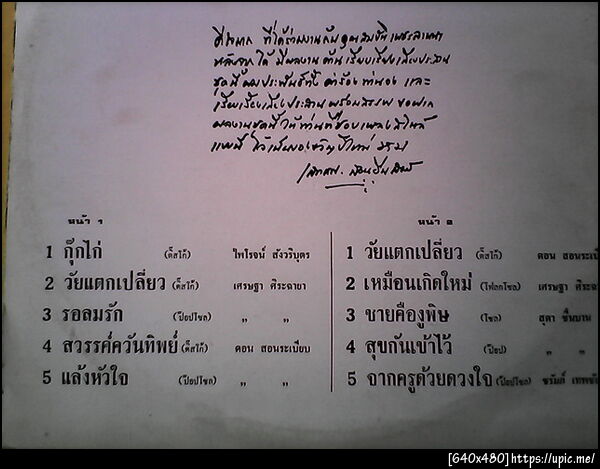 ดีใจมาก ที่ได้ร่วมงานกับคุณสมชัย เพชรลานนา
หลังจากได้ มีผลงาน ด้านเรียบเรียงเสียงประสาน
ชุดนี้ผมประพันธ์ทั้ง คำร้อง ทำนอง และ
เรียบเรียงเสียงประสาน พร้อมสรรพ ขอฝาก
ผลงานชุดนี้ ให้ท่านที่ชอบเพลงสไตล์
แบบนี้ ไว้เป็นของขวัญปีใหม่ ๒๕๒๑
หน้า ๑
1 กุ๊กไก่ (ดิ์สโก้) ไพโรจน์ สังวริบุตร
2 วัยแตกเปลี่ยว (ดิ์สโก้) เศรษฐา ศิระฉายา
3 รอลมรัก (ป๊อปโซล) " "
4 สวรรค์ควันทิพย์ (ดิ์สโก้) ดอน สอนระเบียบ
5 แล้งหัวใจ (ป๊อปโซล) " "
หน้า ๒
1 วัยแตกเปลี่ยว (ดิ์สโก้) ดอน สอนระเบี
2 เหมือนเกิดใหม่ (โฟลคโซล) เศรษฐา ศิระ
3 ชายคืองูพิษ (โซล) สุดา ชื่นบาน
4 สุขกันเข้าไว้ (ป๊อป) " "
5 จากครูด้วยดวงใจ (ป๊อปโซล) ชรัมภ์ เทพชั
[640x480] https://upic.me/